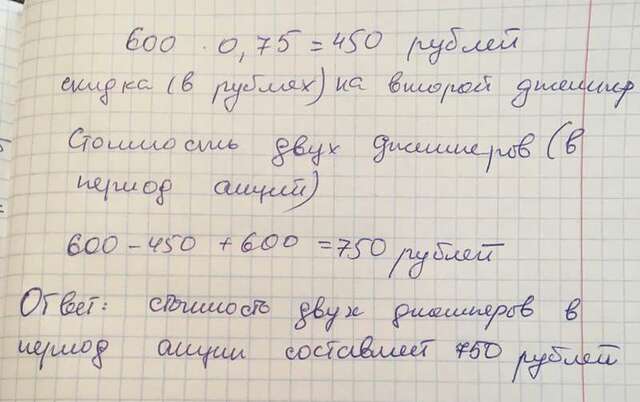 600 · 0,75 = 450 рублей
скидка (в рублях) на второй джемпер
Стоимость двух джемперов (в
период акций)
600 - 450 + 600 = 750 рублей
Ответ: стоимость двух джемперов в
период акции составляет 750 рублей